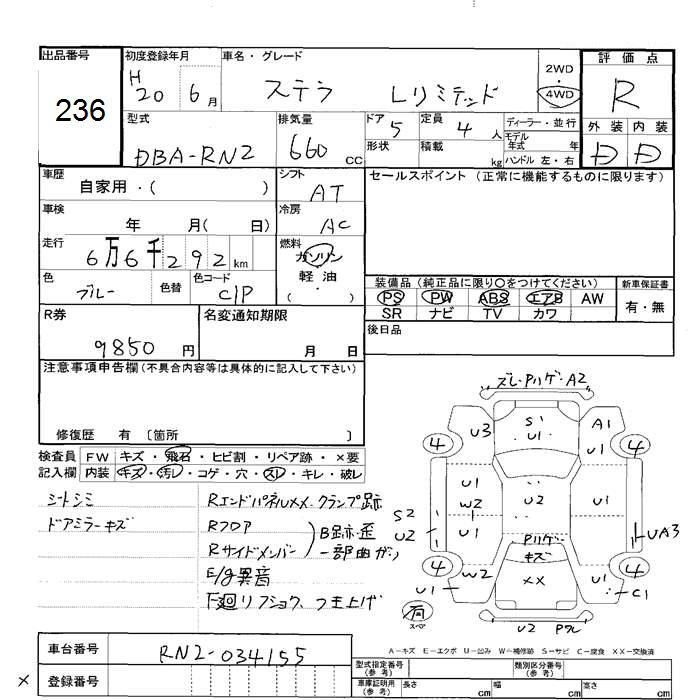 出品番号
236
初度登録年月
H
20 6月
車名・グレード
ステラ Lリミテッド
2WD
・
4WD
評価点
R
外装 内装
D D
型式
DBA-RN2
排気量
660 CC
ドア
5
定員
4 人
形状
積載
kg
ディーラー・並行
モデル
年式 年
ハンドル 左・右
車歴
自家用・( )
シフト
AT
車検
年 月( 日)
冷房
AC
走行
6万6千292km
燃料
ガソリン
軽油
( ・ )
色
ブルー
色替
色コード
C1P
セールスポイント (正常に機能するものに限ります)
装備品 (純正品に限り○をつけてください)
PS PW ABS エアB AW
SR ナビ TV カワ
新車保証書
有・無
後日品
R券
9850 円
名変通知期限
月 日
注意事項申告欄(不具合内容等は具体的に記入して下さい)
修復歴 有 〔箇所 〕
検査員
記入欄
FW キズ・飛石・ヒビ割・リペア跡・×要
内装 キズ・汚レ・コゲ・穴・スレ・キレ・破レ
シートシミ
ドアミラーキズ
RエンドパネルXX.クランプ跡
Rフロア
Rサイドメンバー
B跡歪
一部曲ガリ
E/g異音
下廻リフショク、つき上げ
ズレ・Pハゲ・A2
U3 S1 U1 A1 U1
4 4
U1 W2 U1 U2 U1 U1
S2
U2
UA3
Pハゲ・
キズ
4 4
W2 XX U1
U1 C1
有
スペア
U2 Pワレ
A-キズ E-エクボ U-凹み W-補修跡 S-サビ C-腐食 XX-交換済
車台番号
RN2-034155
× 登録番号
型式指定番号
(参考)
類別区分番号
(参考)
車庫証明用
(参考)
長さ cm 幅 cm 高さ cm